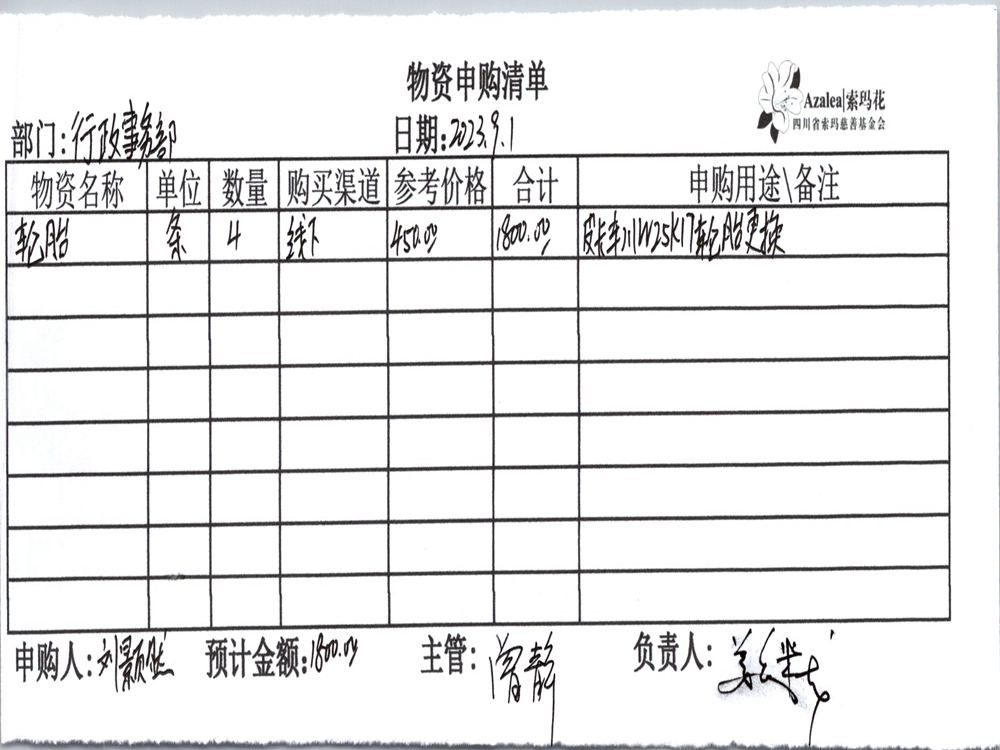 物资申购清单
Azalea|索玛花
四川省索玛慈善基金会
部门:行政事务部 日期:2023.9.1
物资名称 单位 数量 购买渠道 参考价格 合计 申购用途\备注
轮胎 条 4 线下 450.00 1800.00 皮卡车川W25K17轮胎更换
申购人:刘颢然 预计金额:1800.00 主管:曾静 负责人: